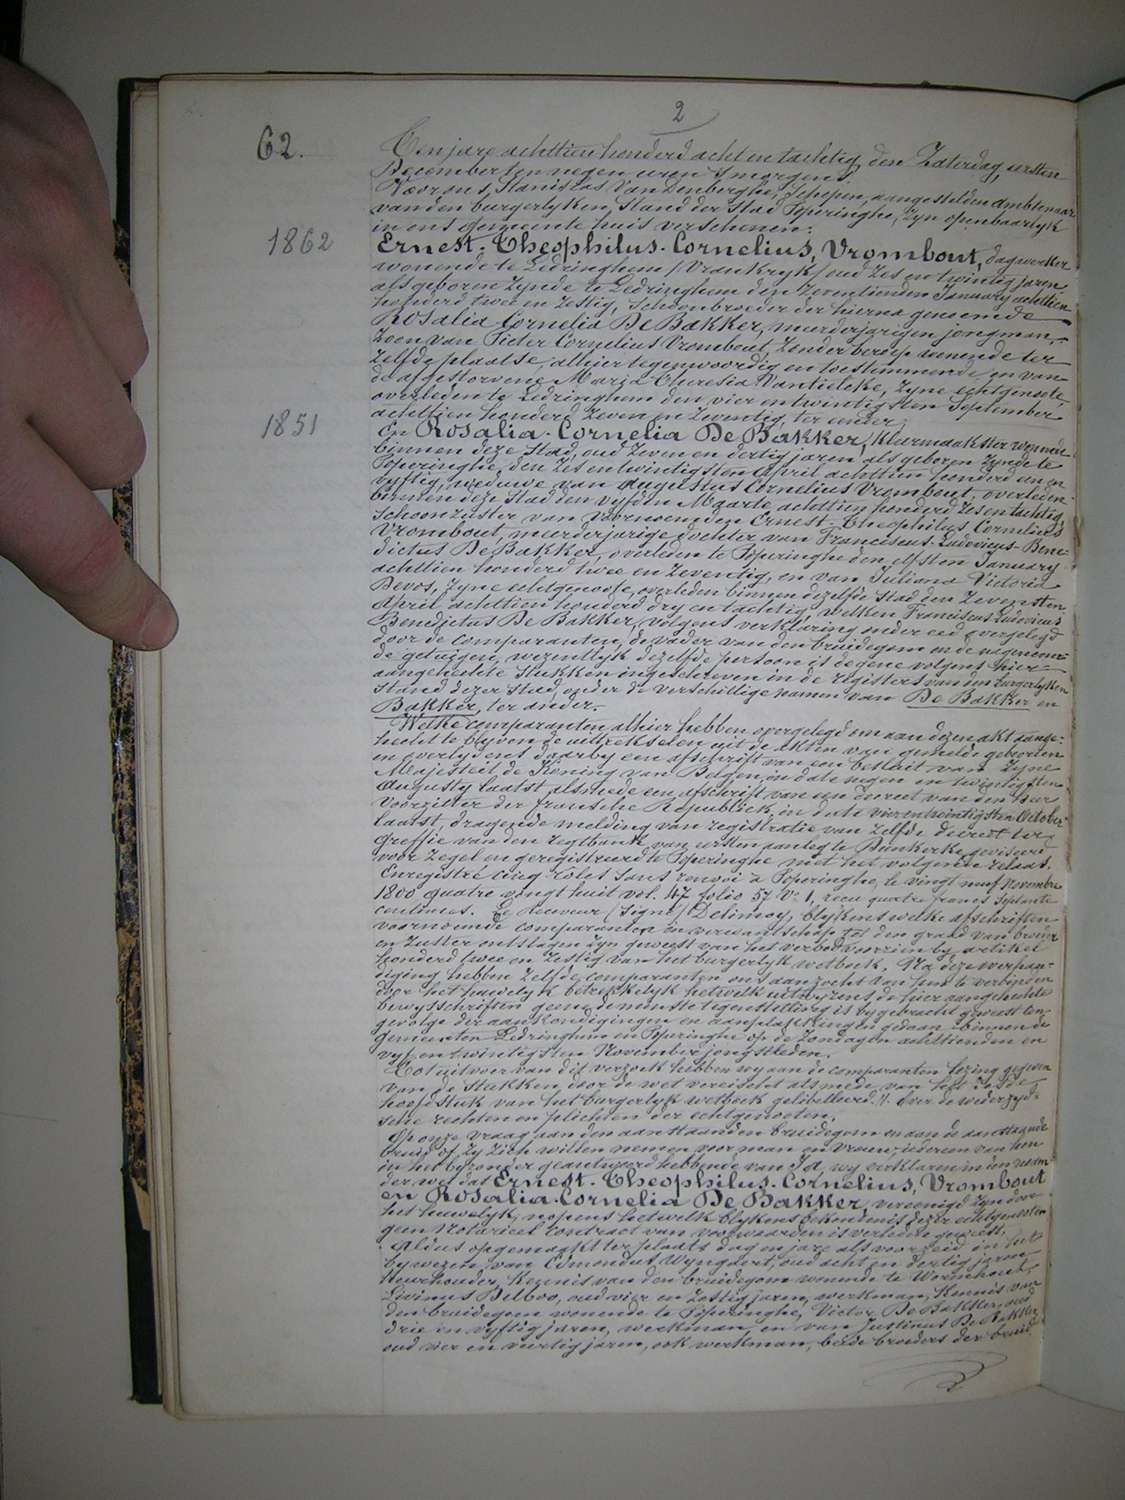 2
62.
Ten jare achttien honderd acht en tachtig, den Zaterdag, eersten
December ten negen uren 's morgens
Voor ons, Stanislas Vandenberghe, Schepen, aangestelden ambtenaar
van den burgerlyken Stand der Stad Poperinghe, zyn openbaarlyk
in ons gemeente huis verschenen:
1862
Ernest-Theophilus-Cornelius, Vrombout, dagwerker
wonende te Ledringhem (Vrankryk) oud zes en twintig jaren
als geboren zynde te Ledringhem den zeventienden January achttien
honderd twee en zestig, schoonbroeder der hierna genoemde
Rosalia Cornelia De Bakker, meerderjarigen jongman,
zoon van Pieter Cornelius Vrombout, zonder beroep wonende ter
zelfde plaatse, alhier tegenwoordig en toestemmende, en van
de afgestorvene Maria Theresia Vantielcke, zyne echtgenoote,
overleden te Ledringhem den vier en twintigsten September
achttien honderd zeven en zeventig, ter eender,
1851
En Rosalia-Cornelia De Bakker, kleermaakster wonende
binnen deze Stad, oud zeven en dertig jaren, als geboren zynde te
Poperinghe, den zes en twintigsten April achttien honderd een en
vyftig, weduwe van Augustus Cornelius Vrombout, overleden
binnen deze Stad den vyfden Maarte achttien honderd zes en tachtig,
schoonzuster van voornoemden Ernest-Theophilus Cornelius
Vrombout, meerderjarige dochter van Franciscus-Ludovicus-Bene-
dictus De Bakker, overleden te Poperinghe den elfsten January
achttien honderd twee en zeventig, en van Juliana Victoria
Devos, zyne echtgenoote, overleden binnen dezelfde Stad den zevensten
April achttien honderd dry en tachtig, welken Franciscus Ludovicus
Benedictus De Bakker, volgens verklaring onder eed afgelegd
door de comparanten, de vader van den bruidegom en de nagenoem-
de getuigen, wezentlyk dezelfde persoon is degene volgens hier
aangehechte stukken ingeschreven in de registers van den burgerlyken
stand dezer stad, onder de verschillige namen van De Bakker en
Bakker, ter ander.
Welke comparanten alhier hebben overgelegd om aan dezen akt aange-
hecht te blyven de uittrekselen uit de akten van gemelde geboorten
en overlydens daarby een afschrift van een besluit van Zyne
Majesteit de Koning van Belgen, in date negen en twintigsten
Augusty laatst, alsmede een afschrift van een decreet van den heer
Voorzitter der fransche Republiek, in date vier en twintigsten October
laatst, dragende melding van registratie van zelfde decreet ter
greffie van den regtbank van eersten aanleg te Dunkerke, geviseerd
voor zegel en geregistreerd te Poperinghe met het volgende relaas.
Enregistré cinq rôles sans renvoi à Poperinghe, le vingt neuf Novembre
1800 quatre vingt huit vol. 47 folio 57 V° 1, recu quatre francs septante
centimes. Le Receveur (Signé) Delimoy, blykens welke afschriften
voornoemde comparanten in verwantschap tot den graad van broeder
en zuster ontslagen zyn geweest van het verbod voorzien by artikel
honderd twee en zestig van het burgerlyk wetboek. Na deze overhan-
diging hebben zelfde comparanten ons aanzocht van hun te verbinden
door het huwelyk betrekkelyk hetwelk uitwyzens de hier aangehechte
bewysschriften geene de minste tegenstelling is bygebracht geweest ten
gevolge der aankondigingen en aanplakkingen gedaan binnen de
gemeenten Ledringhem en Poperinghe op de Zondagen achttienden en
vyf en twintigsten November jongstleden.
Tot uitvoer van dit verzoek hebben wy aan de comparanten lezing gegeven
van de stukken door de wet vereischt alsmede van het zesde
hoofdstuk van het burgerlyk wetboek getibelleerd: over de wederzyd-
sche rechten en plichten der echtgenooten.
Op onze vraag aan den aanstaanden bruidegom en aan de aanstaande
bruid of zy zich willen nemen voor man en vrouw, iederen van hen
in het byzonder geantwoord hebbende van Ja, wy verklaren in den naam
der wet dat Ernest-Theophilus-Cornelius, Vrombout
en Rosalia-Cornelia De Bakker, vereenigd zyn door
het huwelyk, nopens hetwelk blykens bekendenis dezer echtgenooten
geen Notarieel Contract van voorwaarden is verleden geweest.
Aldus opgemaakt ter plaats, dag en jare als voorzeid in het
bywezen van Edmondus Wyngaert, oud acht en dertig jaren
kennis van den bruidegom wonende te Wormhout,
Livinus Delboo, oud vier en zestig jaren, werkman, kennis van
den bruidegom wonende te Poperinghe, Victor De Bakker, oud
drie en vyftig jaren, werkman en van Justinus De Bakker
oud vier en veertig jaren, ook werkman, beide broeders der bruid